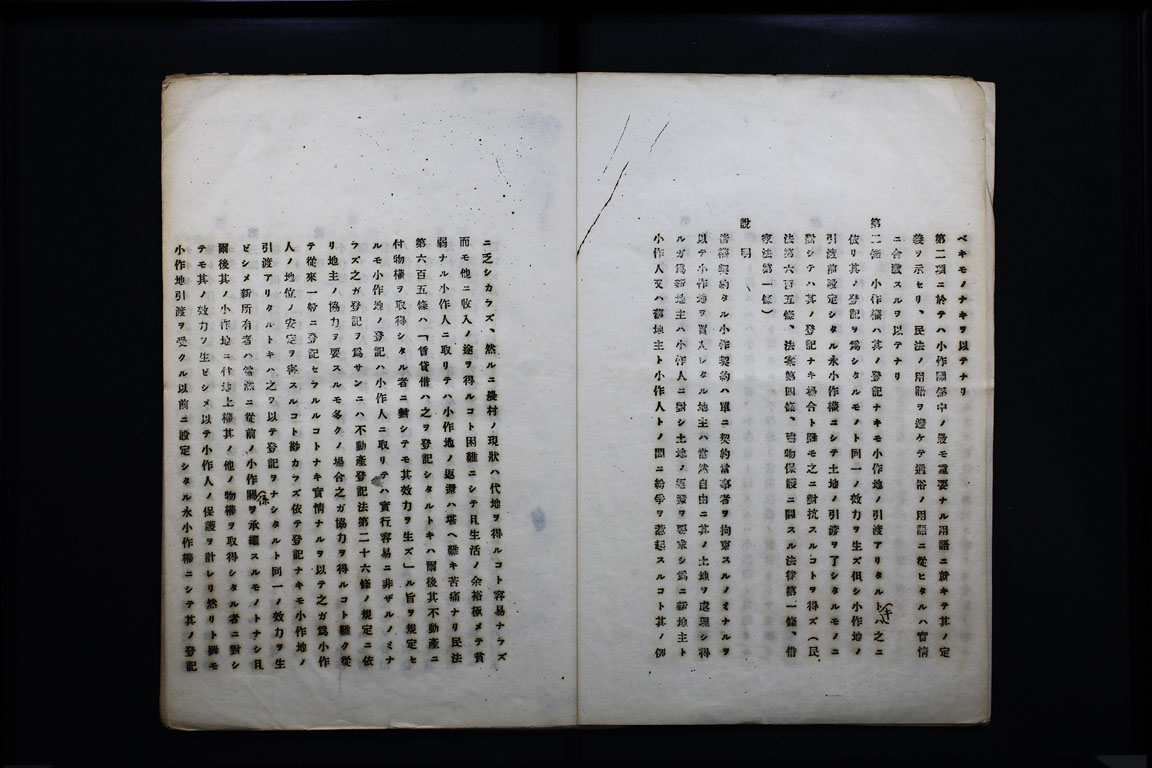 ベキモノナキヲ以テナリ
第二項ニ於テハ小作關係中ノ最モ重要ナル用語ニ就キテ其ノ定
義ヲ示セリ、民法ノ用語ヲ避ケテ通俗ノ用語ニ從ヒタルハ實情
ニ合致スルヲ以テナリ
第二條 小作權ハ其ノ登記ナキモ小作地ノ引渡アリタルトキハ之ニ
依リ其ノ登記ヲ爲シタルモノト同一ノ效力ヲ生ズ但シ小作地ノ
引渡前設定シタル永小作權ニシテ土地ノ引渡ヲ了シタルモノニ
對シテハ其ノ登記ナキ場合ト雖モ之ニ對抗スルコトヲ得ズ（民
法第六百五條、法案第四條、建物保護ニ關スル法律第一條、借
家法第一條）
說明
賃借契約タル小作契約ハ單ニ契約當事者ヲ拘束スルノミナルヲ
以テ小作地ヲ買入レタル地主ハ當然自由ニ其ノ土地ヲ處理シ得
ルガ爲新地主ハ小作人ニ對シ土地ノ返還ヲ要求シ爲ニ新地主ト
小作人又ハ舊地主ト小作人トノ間ニ紛爭ヲ惹起スルコト其ノ例
ニ乏シカラズ、然ルニ農村ノ現狀ハ代地ヲ得ルコト容易ナラズ
而モ他ニ收入ノ途ヲ得ルコト困難ニシテ且生活ノ余裕極メテ貧
弱ナル小作人ニ取リテハ小作地ノ返還ハ堪ヘ難キ苦痛ナリ民法
第六百五條ハ「賃貸借ハ之ヲ登記シタルトキハ爾後其不動產ニ
付物權ヲ取得シタル者ニ對シテモ其效力ヲ生ズ」ル旨ヲ規定セ
ルモ小作地ノ登記ハ小作人ニ取リテハ實行容易ニ非ザルノミナ
ラズ之ガ登記ヲ爲サンニハ不動產登記法第二十六條ノ規定ニ依
リ地主ノ協力ヲ要スルモ多クノ場合之ガ協力ヲ得ルコト難ク從
テ從來一般ニ登記セラルルコトナキ實情ナルヲ以テ之ガ爲小作
人ノ地位ノ安定ヲ害スルコト尠カラズ依テ登記ナキモ小作地ノ
引渡アリタルトキハ之ヲ以テ登記ヲナシタルト同一ノ效力ヲ生
ビシメ新所有者ハ當然ニ從前ノ小作關係ヲ承繼スルモノトナシ且
爾後其ノ小作地ニ付地上權其ノ他ノ物權ヲ取得シタル者ニ對シ
テモ其ノ效力ヲ生ビシメ以テ小作人ノ保護ヲ計レリ然リト雖モ
小作地引渡ヲ受クル以前ニ設定シタル永小作權ニシテ其ノ登記